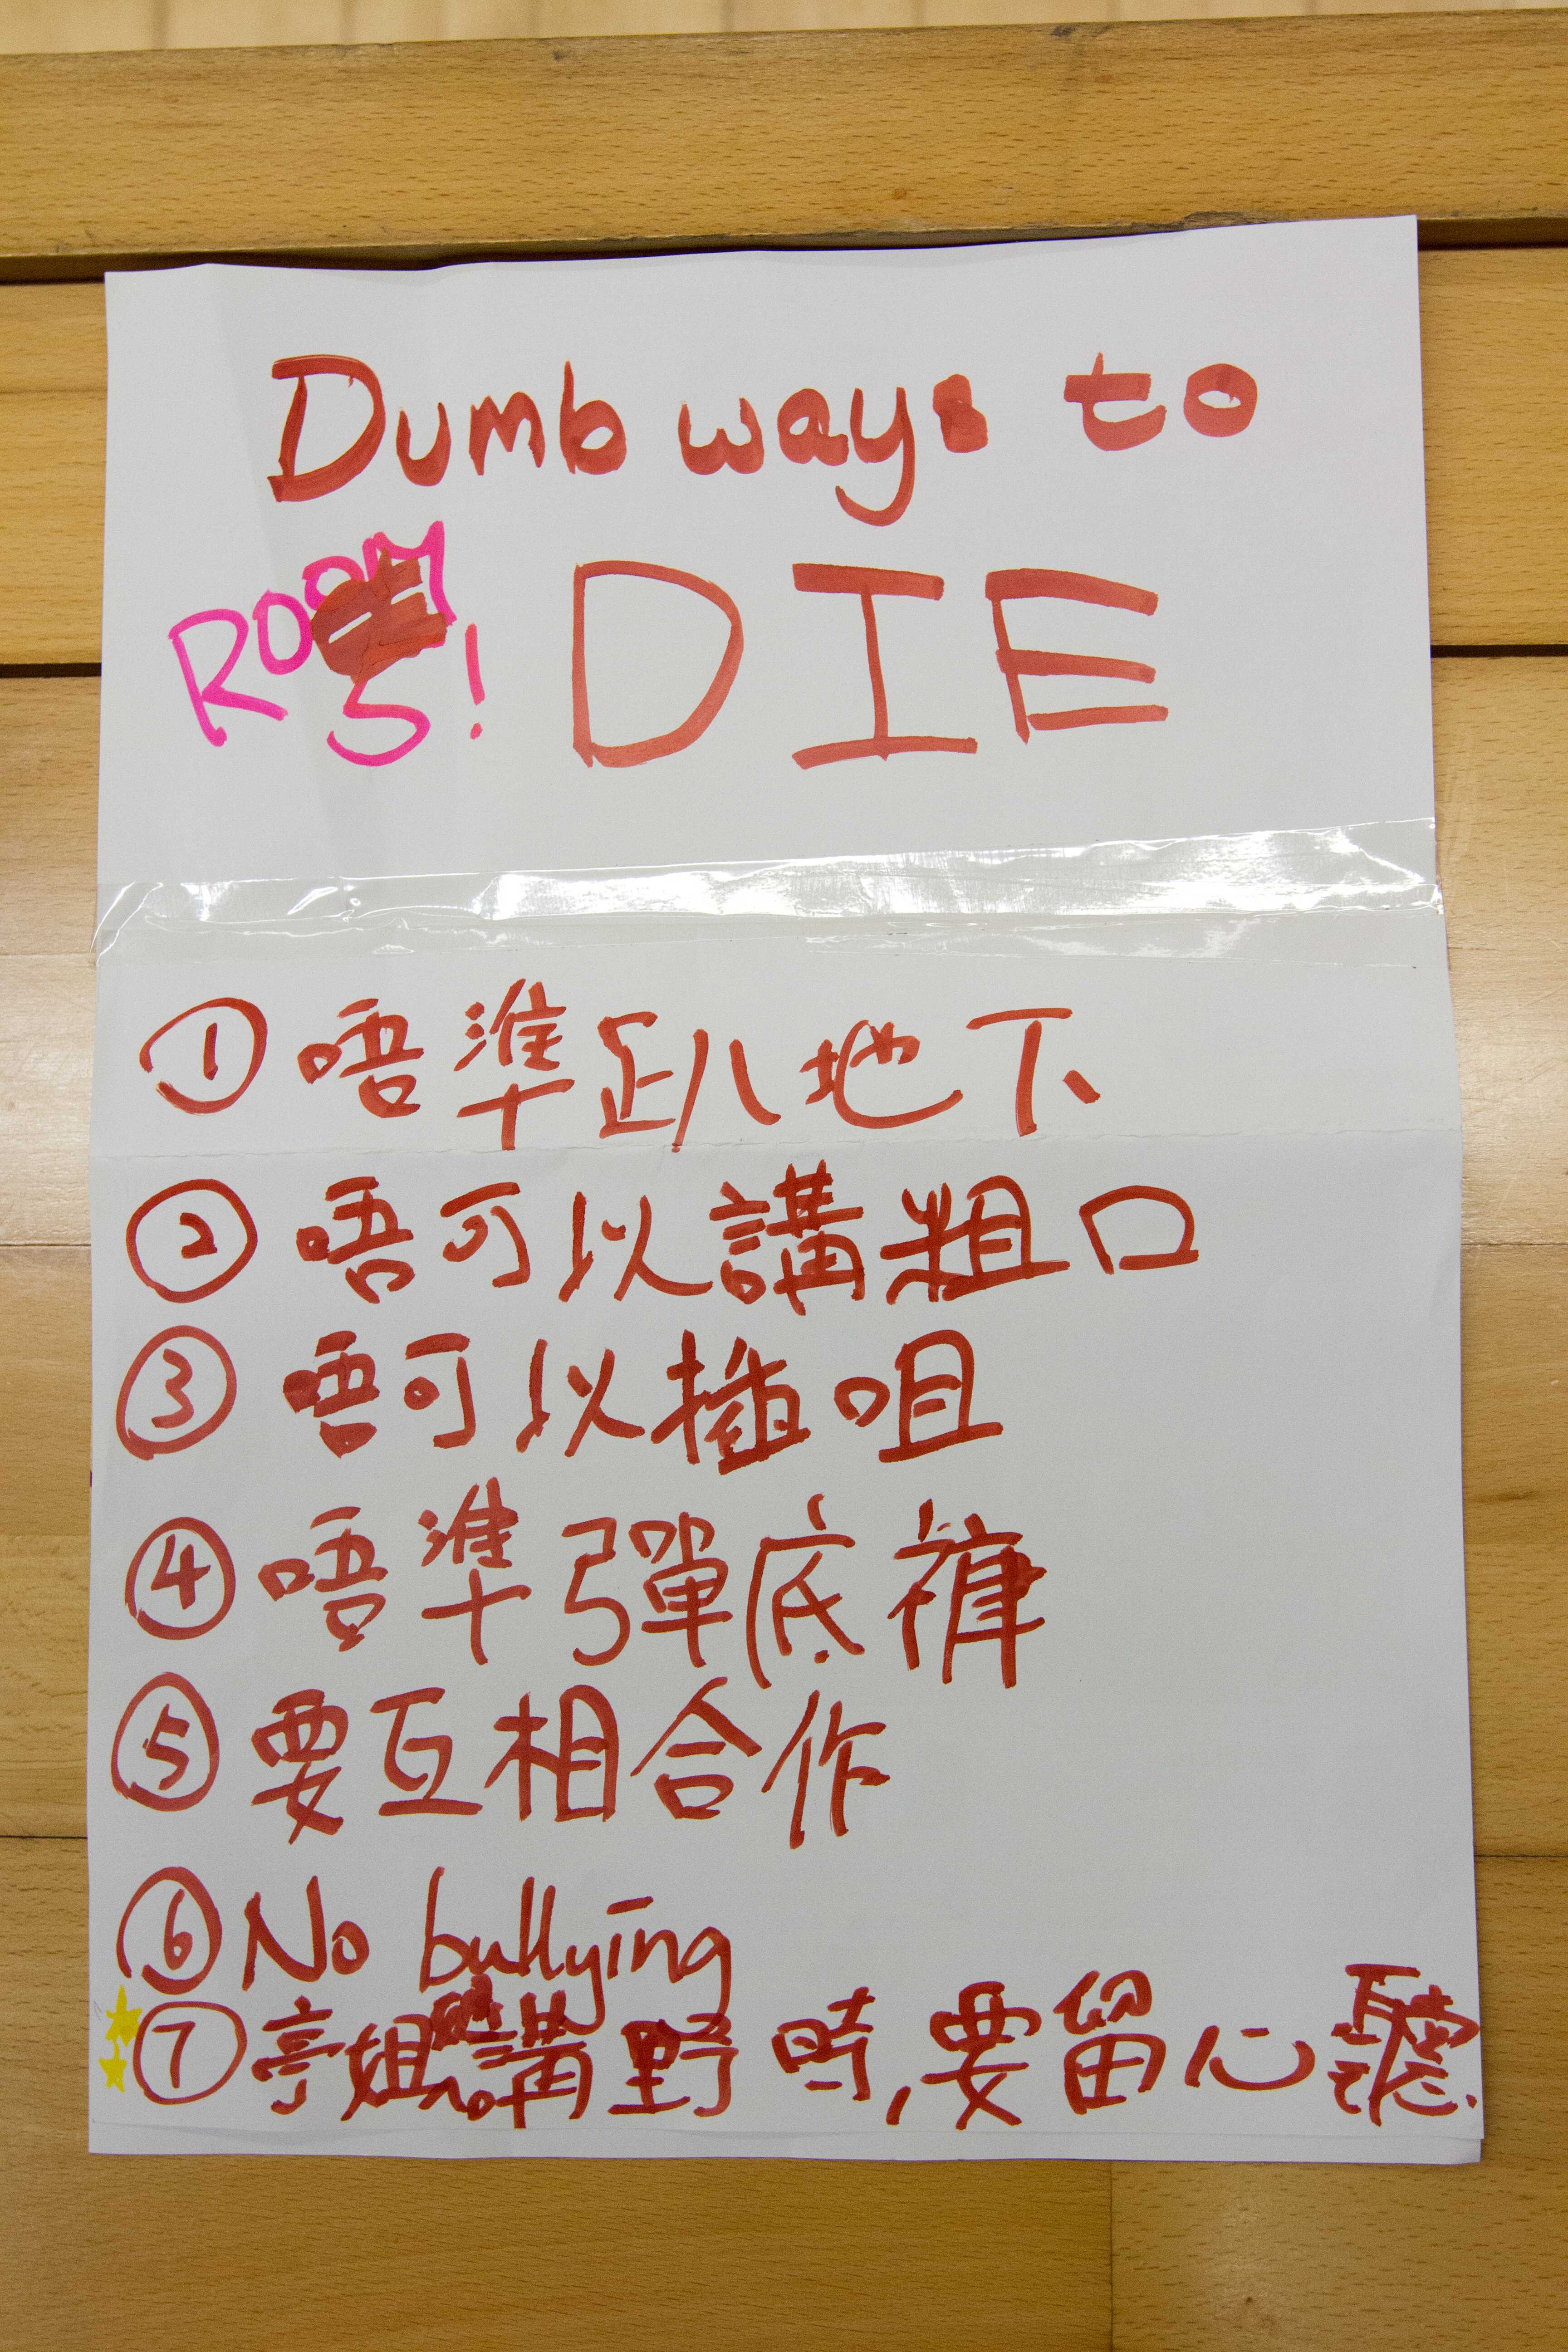 Dumb ways to
DIE
ROOM
5!
① 唔準趴地下
② 唔可以講粗口
③ 唔可以插咀
④ 唔準彈底褲
⑤ 要互相合作
⑥ No bullying
⑦ 亭姐講野時,要留心聽.